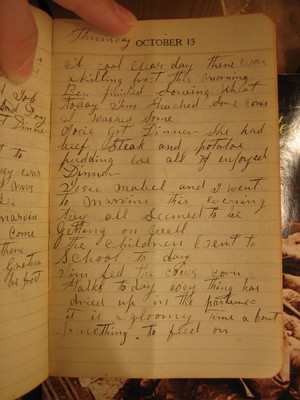 Thursday
OCTOBER 13
A cool clear day there was
a killing frost this morning
Ben finished Sowing wheat
today Jim shucked some corn
I washed some
Rosie Got Dinner She had
beef Steak and potatoe
pudding we all of enjoyed
Dinner
Rosie Mabel and I went
to Marvins this evening
they all Seemed to be
getting on well
The Children went to
School to day
Jim fed the cows corn
Stalks today every thing has
dried up in the pasture
it is a gloomy time about
Something to feed on
Job
Dinner
t to
ey was
marvin
come
there
Gretna